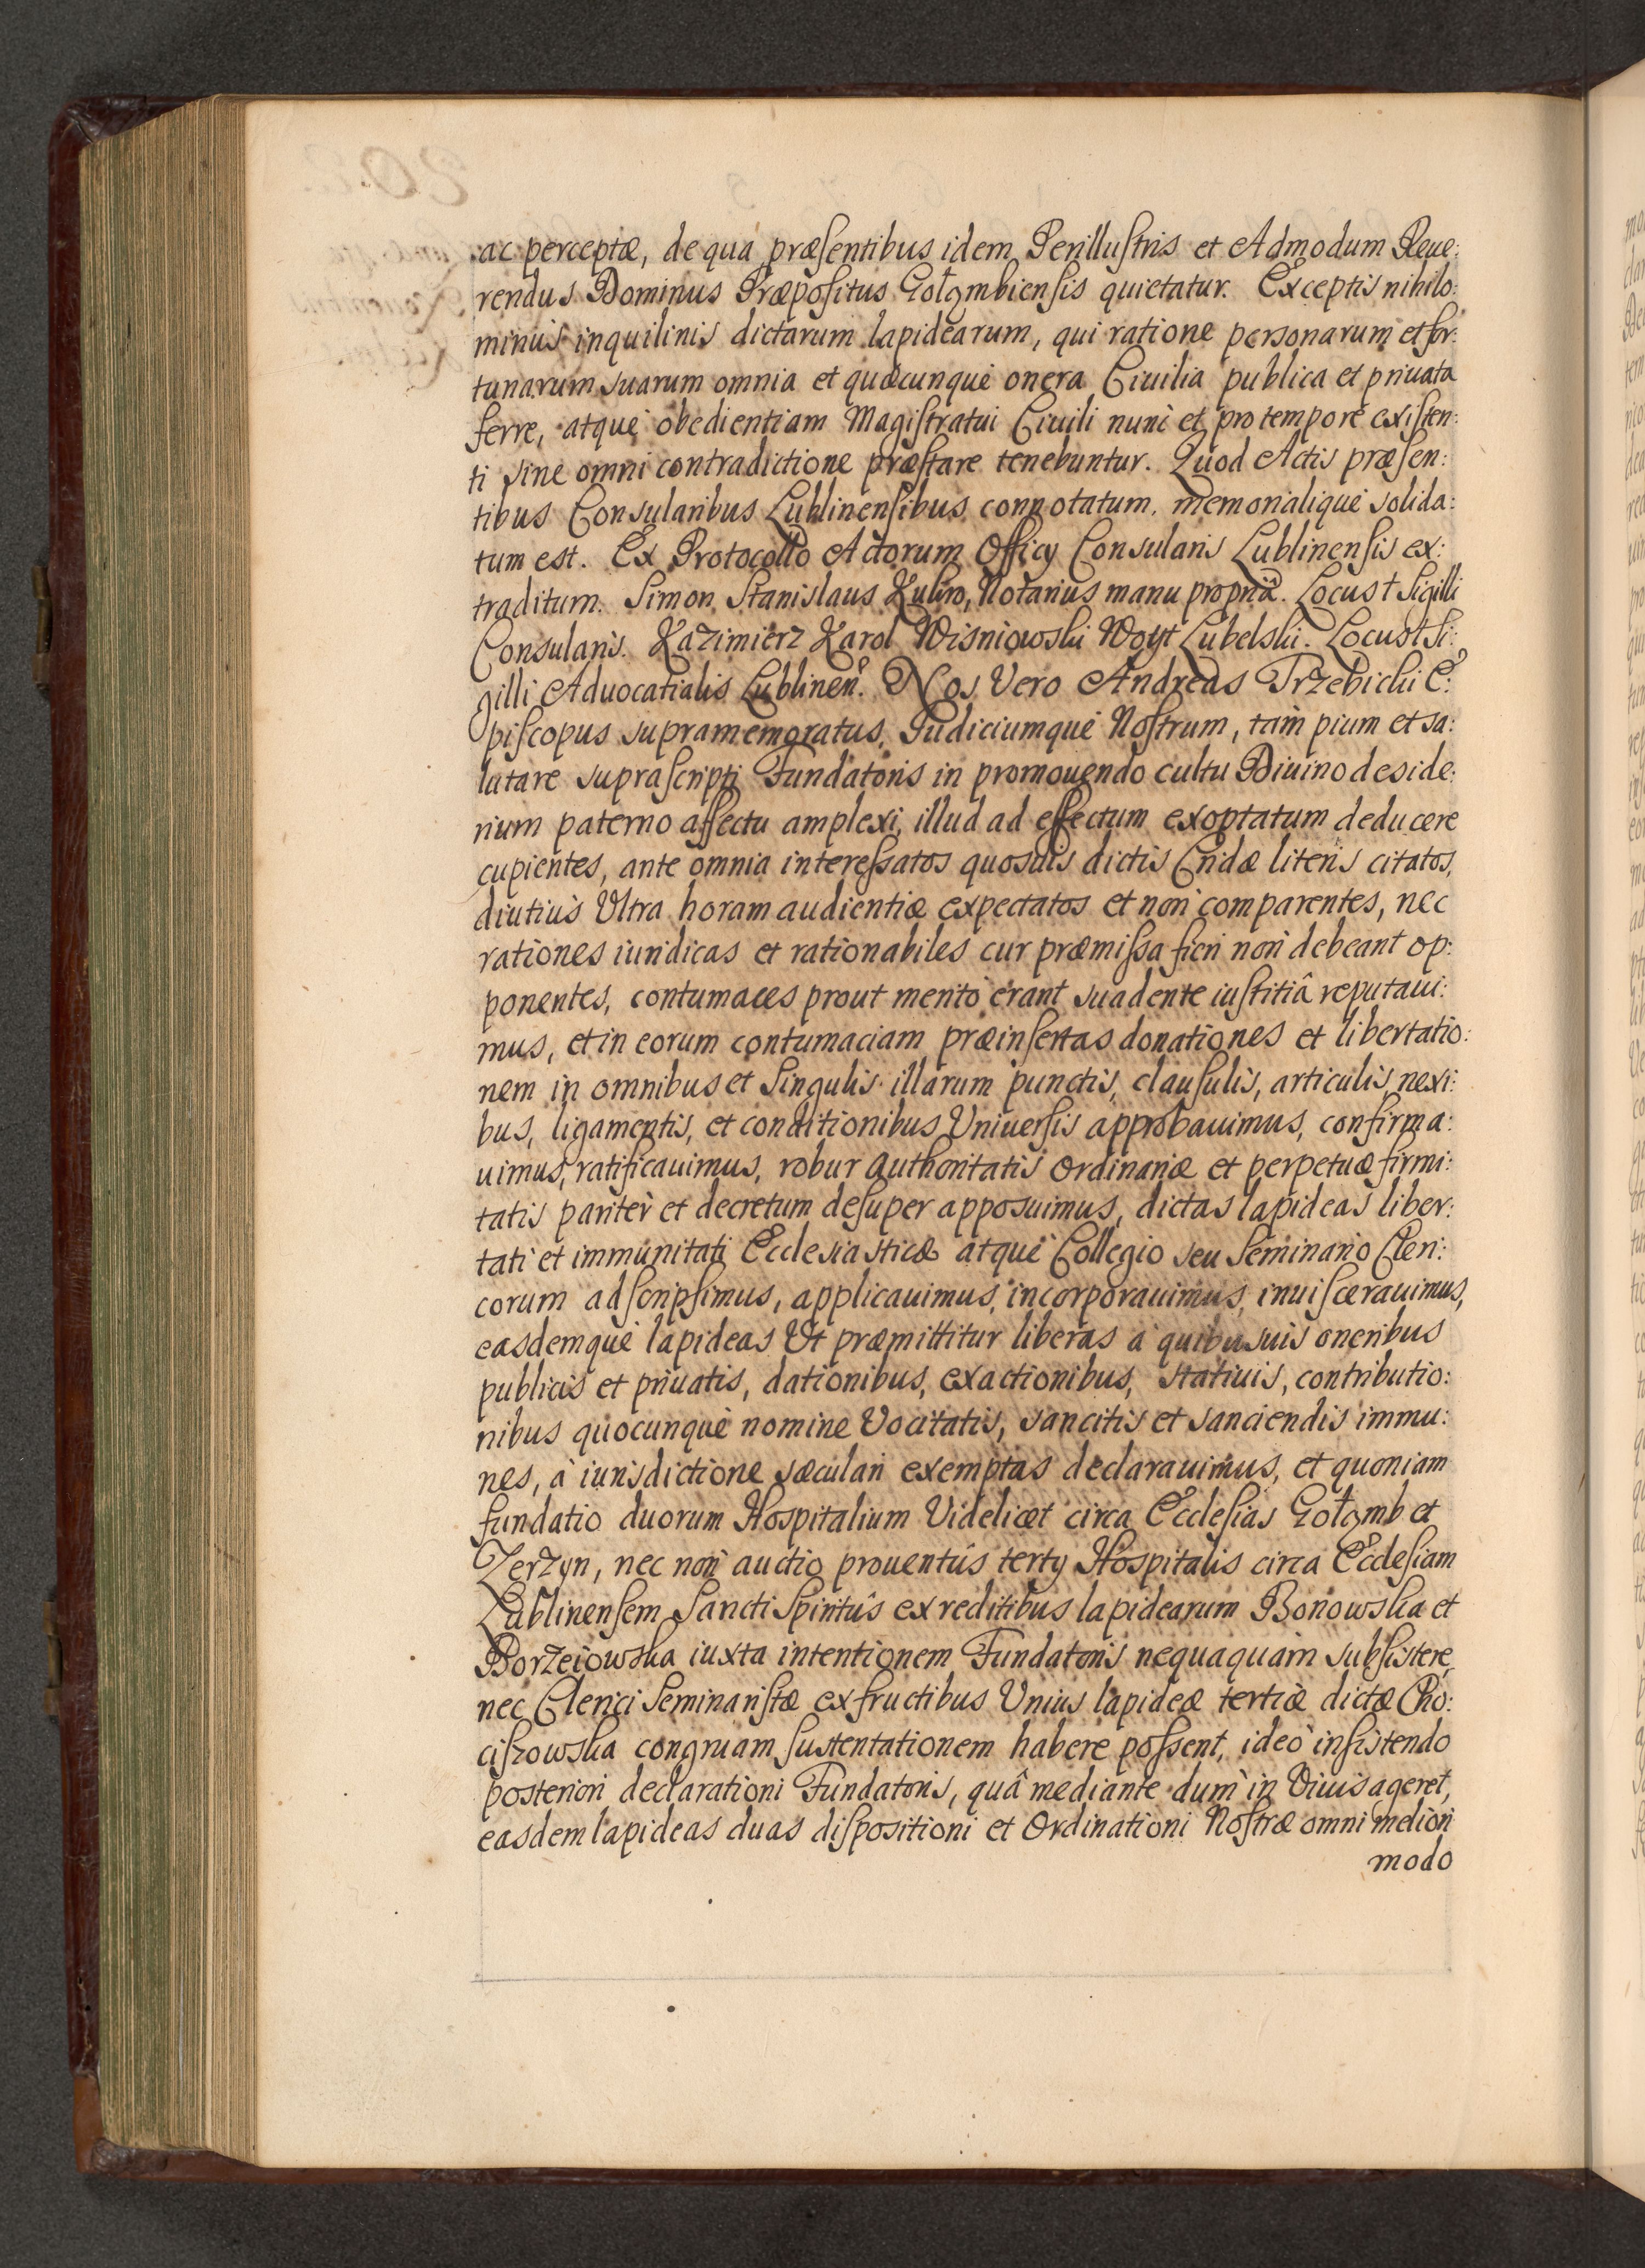 ac perceptæ, de qua præſentibus idem Perilluſtris et Admodum Reue:
rendus Dominus Præpoſitus Gołąmbienſis quietatur. Exceptis nihilo:
minùs inquilinis dictarum lapidearum, qui ratione personarum et for:
tunarum suarum omnia et quæcunque onera Ciuilia publica et priuata
ferre, atque obedientiam Magiſtratui Ciuili nunc et pro tempore exiſten:
ti sine omni contradictione præſtare tenebuntur. Quod Actis præſen:
tibus Consularibus Lublinenſibus connotatum, memorialique solida:
tum est. Ex Protocollo Actorum Officy Consularis Lublinenſis ex:
traditum. Simon Stanislaus Notarius manu propriâ. Locus † Sigilli
Consularis. Kazimierz Karol Wisniowski Woyt Lubelski. Locus † Si:
gilli Aduocatialis Lublineñ. Nos Vero Andreas Trzebicki E:
piſcopus supramemoratus, Iudiciumque Noſtrum, tàm pium et sa:
lutare supraſcripti Fundatoris in promouendo cultu Diuino deside:
rium paterno affectu amplexi, illud ad effectum exoptatum deducere
cupientes, ante omnia intereſsatos quosuis dictis Cridæ literis citatos,
diutiùs Vltra horam audientiæ expectatos et non comparentes, nec
rationes iuridicas et rationabiles cur præmiſsa fieri non debeant op:
ponentes, contumaces prout meritò erant suadente iuſtitiâ reputaui:
mus, et in eorum contumaciam præinſertas donationes et libertatio:
nem in omnibus et Singulis illarum punctis, clauſulis, articulis, nexi:
bus, ligamentis, et conditionibus Vniuerſis approbauimus, confirma:
uimus, ratificauimus, robur authoritatis Ordinariæ et perpetuæ firmi:
tatis pariter et decretum deſuper apposuimus, dictas lapideas liber:
tati et immunitati Ecclesiasticæ atque Collegio seu Seminario Cleri:
corum adſcripſimus, applicauimus, incorporauimus, inuiſcerauimus,
easdemque lapideas Vt præmittitur liberas à quibusuis oneribus
publicis et priuatis, dationibus, exactionibus, statiuis, contributio:
nibus quocunque nomine Vocitatis, sancitis et sanciendis immu:
nes, à iurisdictione sæculari exemptas declarauimus, et quoniam
fundatio duorum Hospitalium Videlicet circa Eccleſias Gołąmb et
Zerzyn, nec non auctio prouentûs terty Hospitalis circa Eccleſiam
Lublinenſem Sancti Spiritûs ex reditibus lapidearum Bonowska et
Borzeiowska iuxta intentionem Fundatoris nequaquàm subſistere,
nec Clerici Seminariſtæ ex fructibus Vnius lapideæ tertiæ dictæ Cho:
ciſzowska congruam ſustentationem habere poſsent, ideò inſistendo
posteriori declarationi Fundatoris, quâ mediante dum in Viuis ageret,
easdem lapideas duas diſpositioni et Ordinationi Noſtræ omni meliori
modo